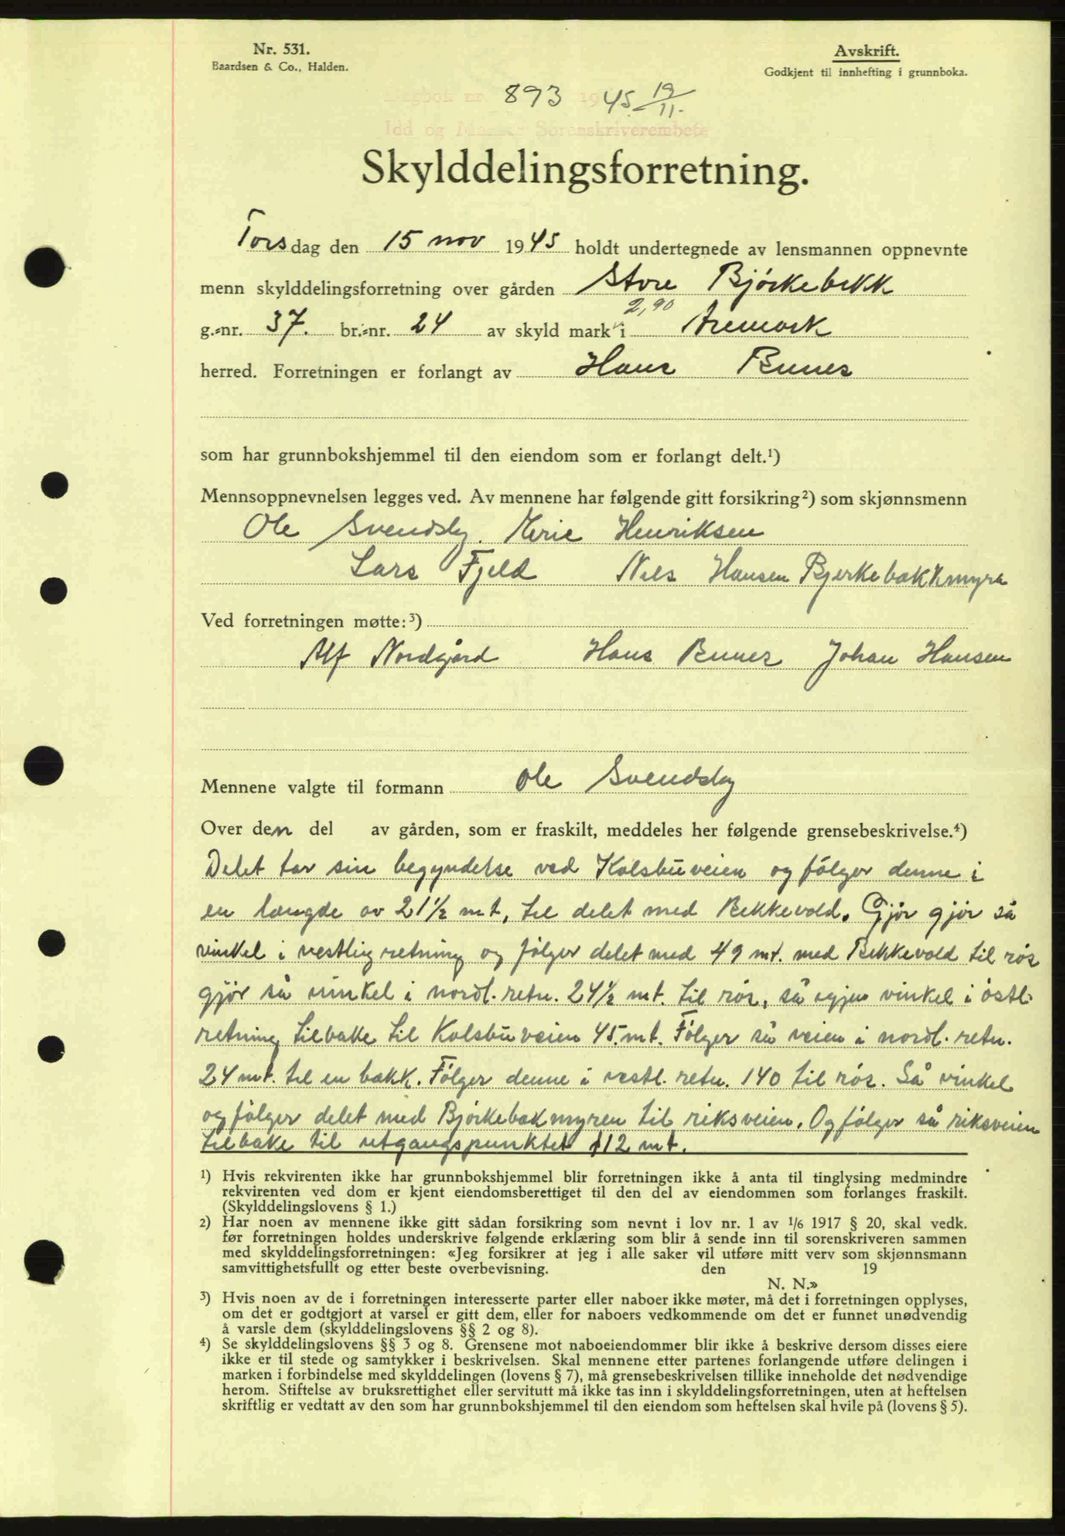 Nr. 531.
Baardsen & Co., Halden.
Avskrift.
Godkjent til innhefting i grunnboka.
Dagbok nr. 893 1945 19/11.
Idd og Marker Sorenskriverembete
Skylddelingsforretning.
Torsdag den 15 nov 1945 holdt undertegnede av lensmannen oppnevnte
menn skylddelingsforretning over gården Store Bjørkebekk
g.-nr. 37. br.-nr. 24 av skyld mark 2,90 i Aremark
herred. Forretningen er forlangt av Hans Buner
som har grunnbokshjemmel til den eiendom som er forlangt delt.¹)
Mennsoppnevnelsen legges ved. Av mennene har følgende gitt forsikring²) som skjønnsmenn
Ole Svendsby. Henriksen
Lars Fjeld Nils Hansen Bjerkebækkmyra
Ved forretningen møtte:³)
Alf Nordgård Hans Buner Johan Hansen
Mennene valgte til formann Ole Svendsby
Over den del av gården, som er fraskilt, meddeles her følgende grensebeskrivelse.⁴)
Delet tar sin begyndelse ved Kolsbuveien og følger denne i
en længde av 21½ mt, til delet med Bekkevold. Gjør gjør så
vinkel i vestlig retning og følger delet med 49 mt. med Bekkevold til røs
gjør så vinkel i nordl. retn. 24½ mt. til røs, så vinkel i østl.
retning tilbake til Kolsbuveien 45 mt. Følger så veien i nordl. retn.
24 mt. til en bækk. Følger denne i vestl. retn. 140 til røs. Så vinkel
og følger delet med Bjørkebækmyren til riksveien. Og følger så riksveien
tilbake til utgangspunktet 112 mt.
¹) Hvis rekvirenten ikke har grunnbokshjemmel blir forretningen ikke å anta til tinglysing medmindre
rekvirenten ved dom er kjent eiendomsberettiget til den del av eiendommen som forlanges fraskilt.
(Skylddelingslovens § 1.)
²) Har noen av mennene ikke gitt sådan forsikring som nevnt i lov nr. 1 av 1/6 1917 § 20, skal vedk.
før forretningen holdes underskrive følgende erklæring som blir å sende inn til sorenskriveren sammen
med skylddelingsforretningen: «Jeg forsikrer at jeg i alle saker vil utføre mitt verv som skjønnsmann
samvittighetsfullt og etter beste overbevisning. den 19
N. N.»
³) Hvis noen av de i forretningen interesserte parter eller naboer ikke møter, må det i forretningen opplyses,
om det er godtgjort at varsel er gitt dem, eller for naboers vedkommende om det er funnet unødvendig
å varsle dem (skylddelingslovens §§ 2 og 8).
⁴) Se skylddelingslovens §§ 3 og 8. Grensene mot naboeiendommer blir ikke å beskrive dersom disses eiere
ikke er til stede og samtykker i beskrivelsen. Skal mennene etter partenes forlangende utføre delingen i
marken i forbindelse med skylddelingen (lovens § 7), må grensebeskrivelsen tillike inneholde det nødvendige
herom. Stiftelse av bruksrettighet eller servitutt må ikke tas inn i skylddelingsforretningen, uten at heftelsen
skriftlig er vedtatt av den som har grunnbokshjemmel til den eiendom som heftelsen skal hvile på (lovens § 5).